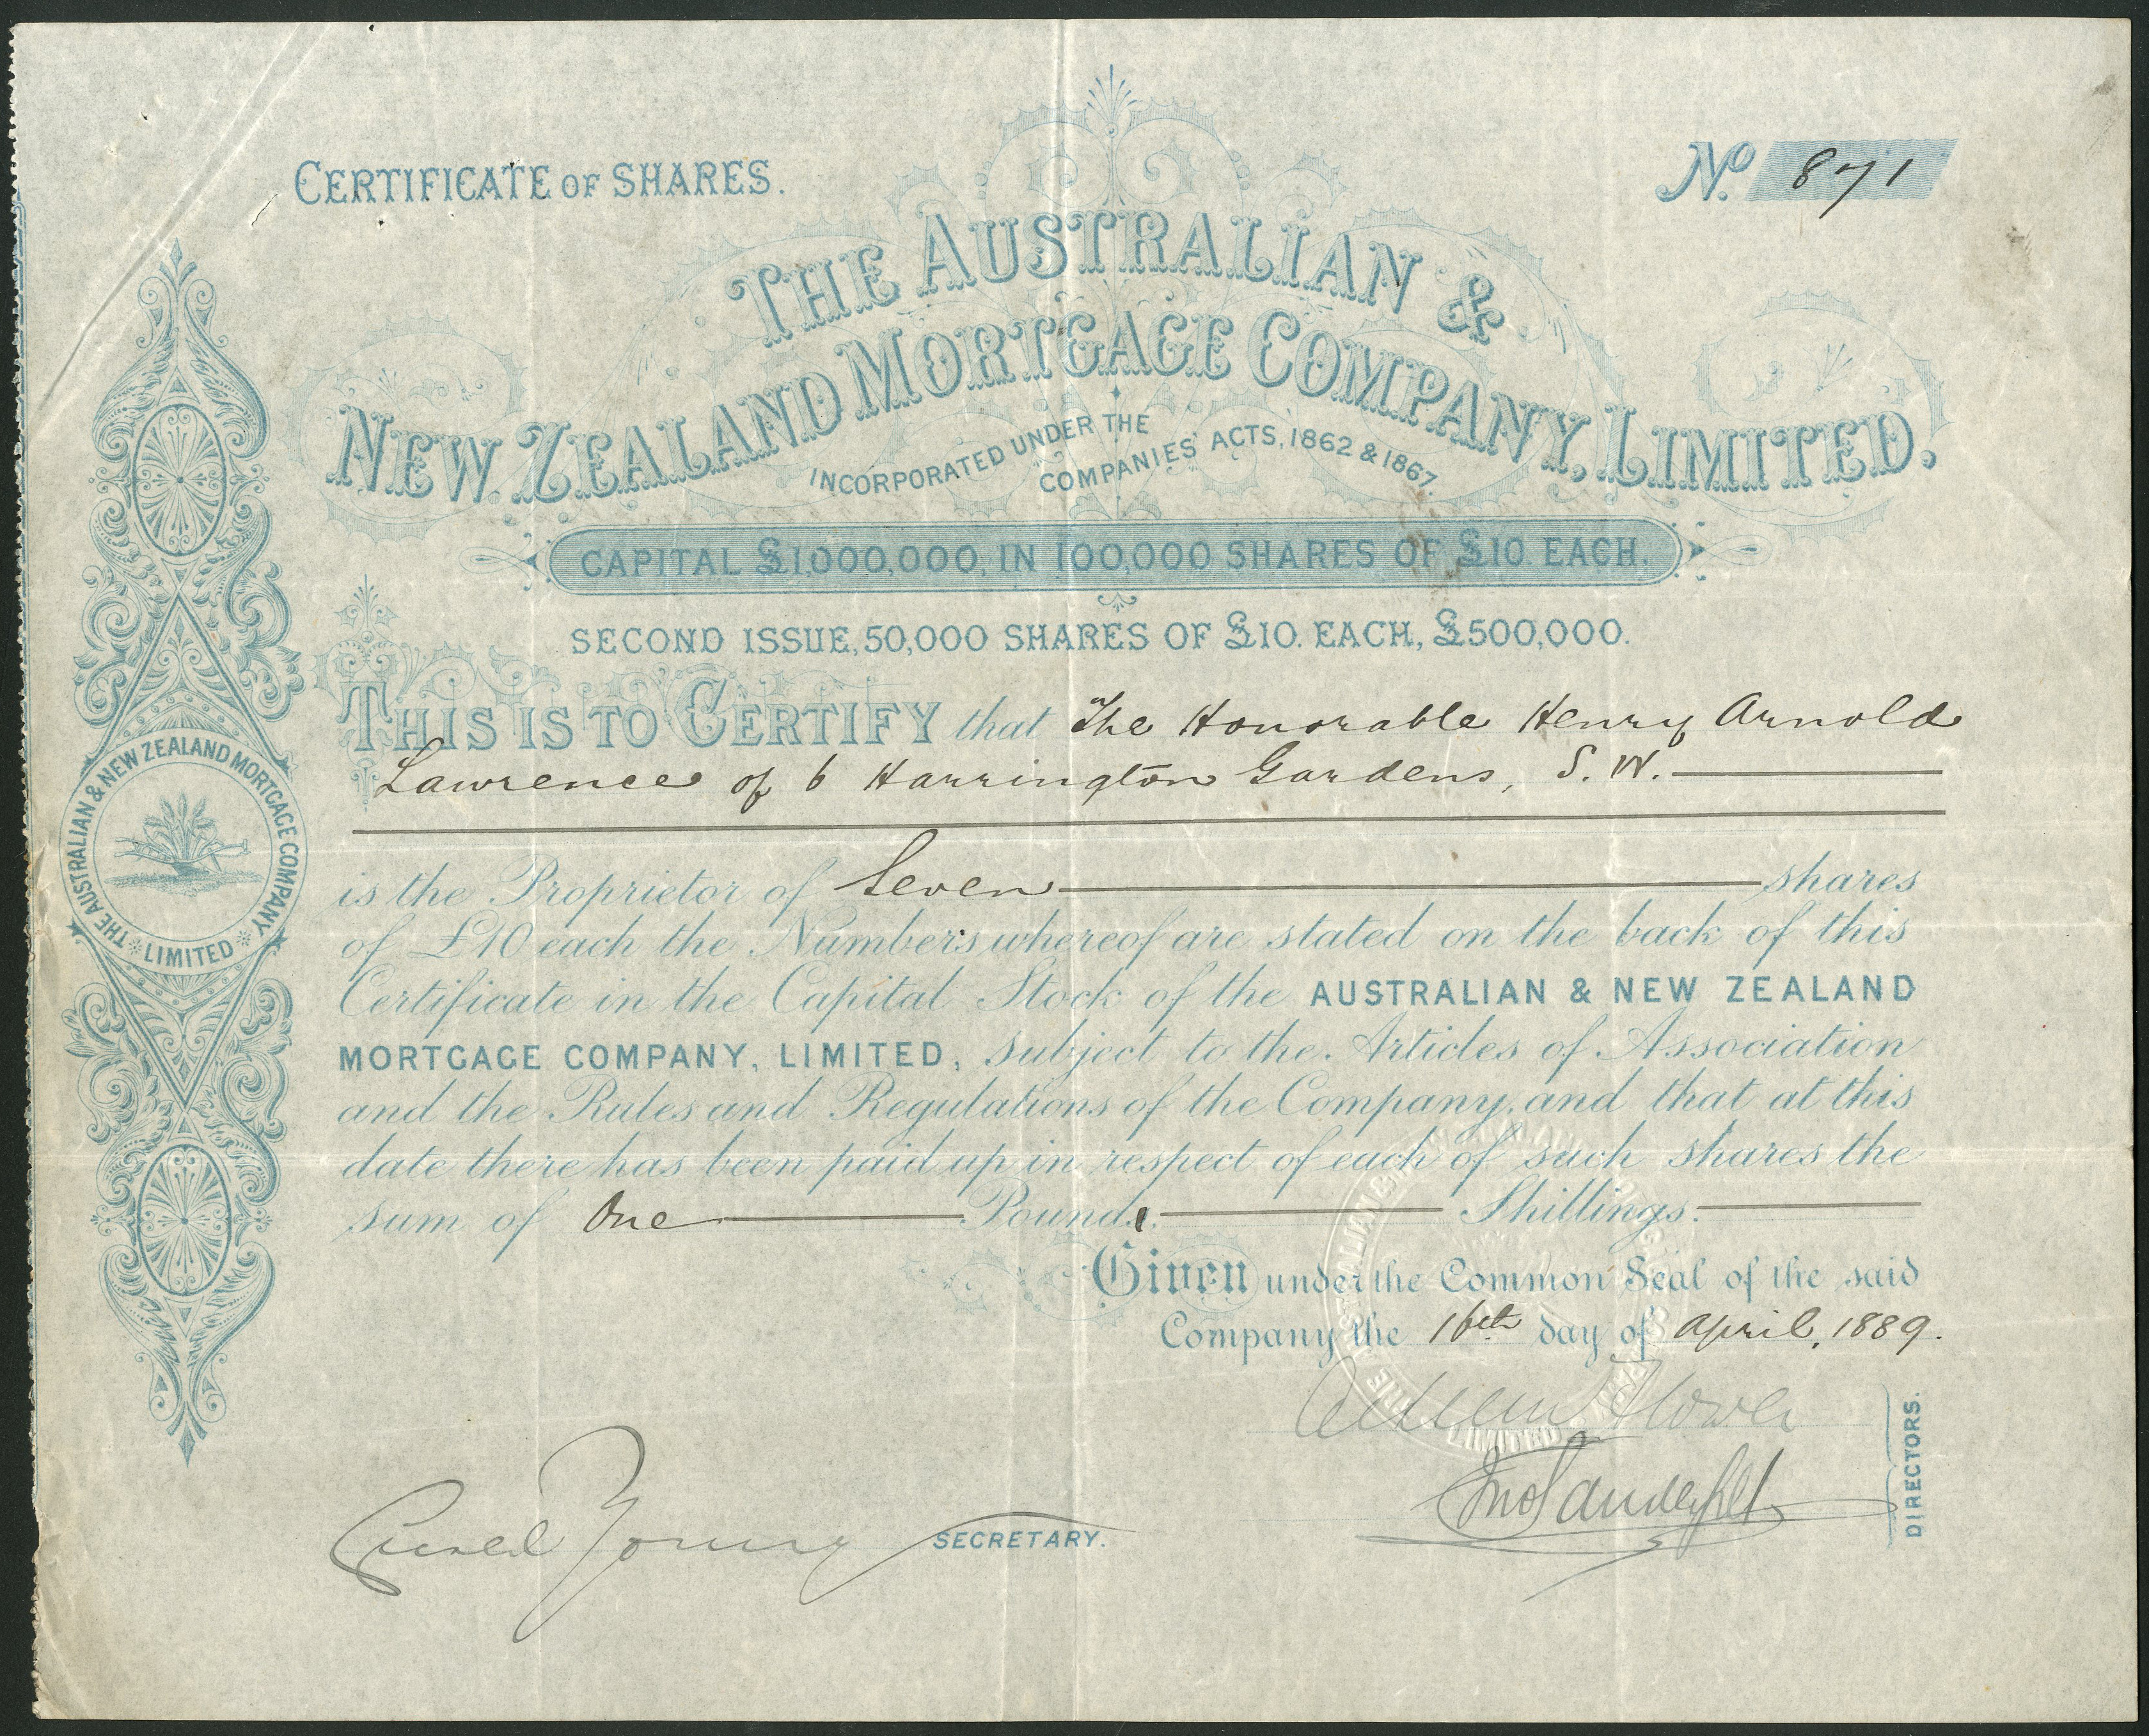 CERTIFICATE OF SHARES.
No. 871
THE AUSTRALIAN &
NEW ZEALAND MORTGAGE COMPANY, LIMITED.
INCORPORATED UNDER THE
COMPANIES' ACTS, 1862 & 1867.
CAPITAL £1,000,000, IN 100,000 SHARES OF £10. EACH.
SECOND ISSUE, 50,000 SHARES OF £10. EACH, £500,000.
THIS IS TO CERTIFY that The Honorable Henry Arnold
Lawrence of 6 Harrington Gardens, S.W.
is the Proprietor of Seven shares
of £10 each the Numbers whereof are stated on the back of this
Certificate in the Capital Stock of the AUSTRALIAN & NEW ZEALAND
MORTGAGE COMPANY, LIMITED, subject to the Articles of Association
and the Rules and Regulations of the Company, and that at this
date there has been paid up in respect of each of such shares the
sum of One Pound Shillings.
Given under the Common Seal of the said
Company the 16th day of April, 1889.
Young SECRETARY.
DIRECTORS.
THE AUSTRALIAN & NEW ZEALAND MORTGAGE COMPANY
LIMITED